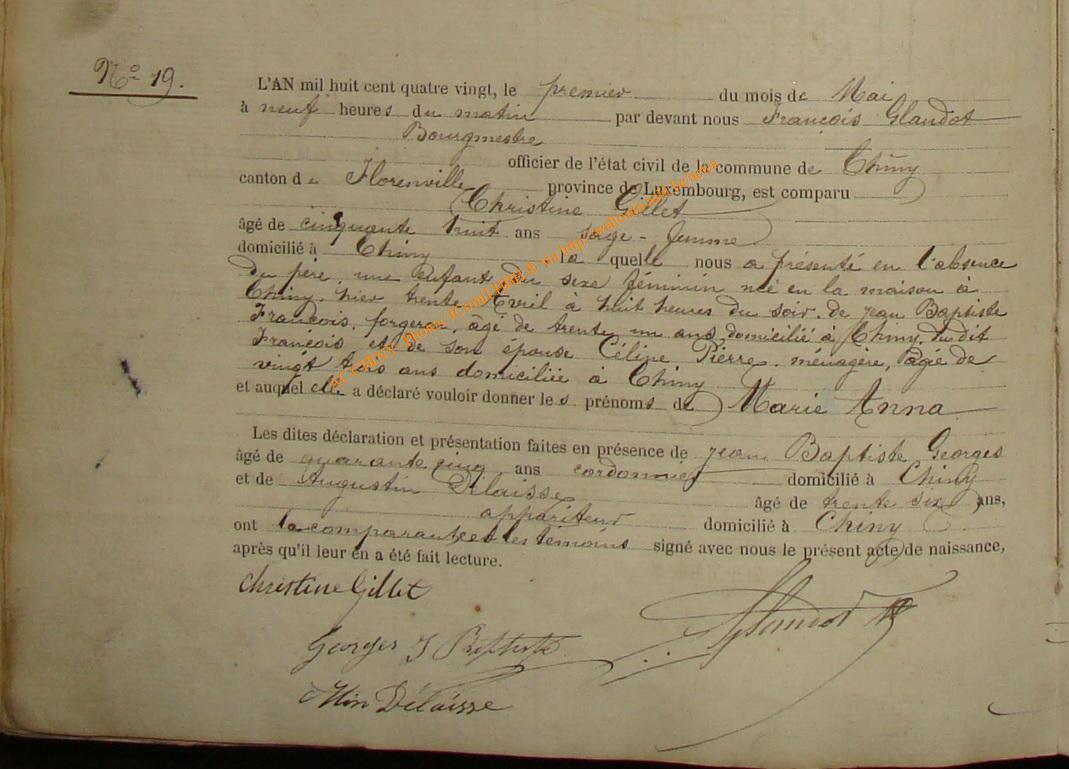 No 19.
L'AN mil huit cent quatre vingt, le premier du mois de Mai
à neuf heures du matin par devant nous François Glaudot
Bourgmestre
officier de l'état civil de la commune de Chiny
canton de Florenville province de Luxembourg, est comparu
Christine Gillet
âgé de cinquante huit ans sage-femme
domicilié à Chiny la quelle nous a présenté en l'absence
du père, une enfant du sexe féminin née en la maison à
Chiny, hier trente Avril à huit heures du soir, de Jean Baptiste
François, forgeron, âgé de trente un ans, domicilié à Chiny, du dit
François et de son épouse Céline Pierre, ménagère, âgée de
vingt trois ans domiciliée à Chiny
et auquel elle a déclaré vouloir donner les prénoms de Marie Anna
Les dites déclaration et présentation faites en présence de Jean Baptiste Georges
âgé de quarante cinq ans cordonnier domicilié à Chiny
et de Augustin Délaisse âgé de trente six ans,
appariteur domicilié à Chiny
ont la comparante et les témoins signé avec nous le présent acte de naissance,
après qu'il leur en a été fait lecture.
Christine Gillet
Georges J Baptiste
Glaudot
Délaisse